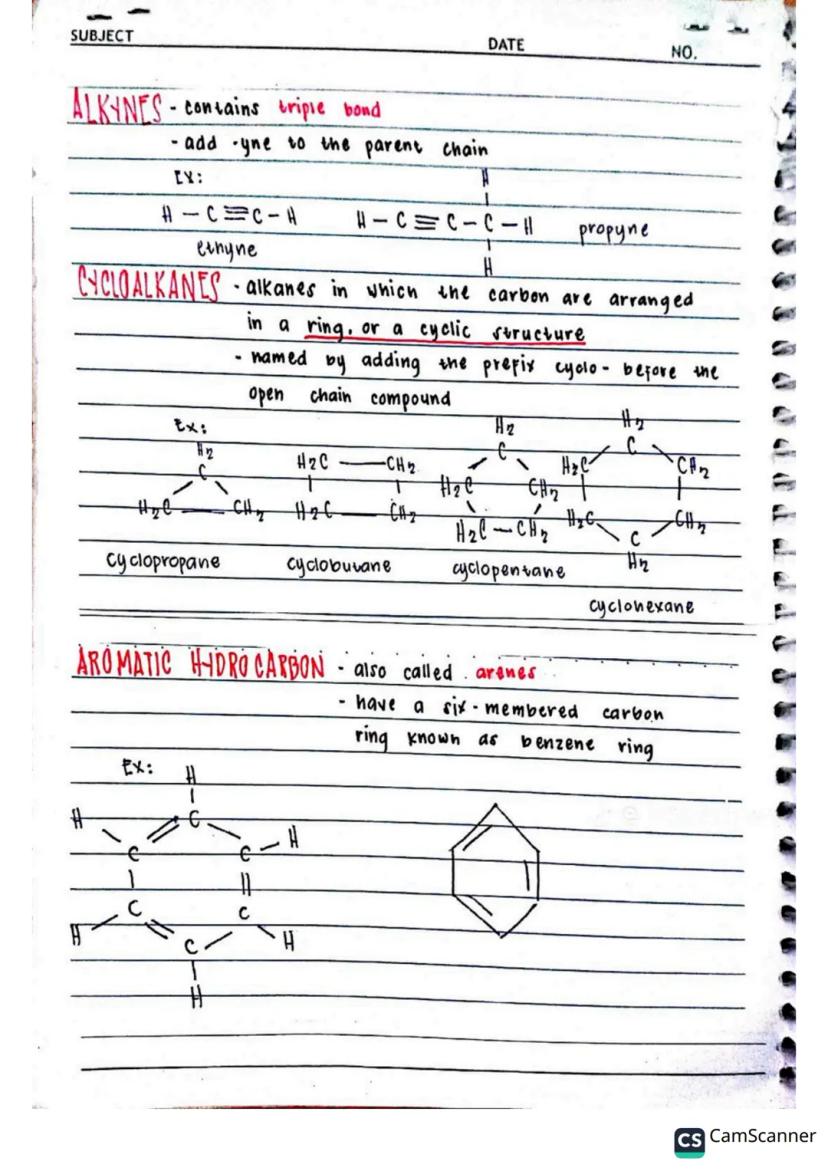 SUBJECT
DATE
NO.
ALKYNES - contains triple bond
- add -yne to the parent chain
EX:
H
H - C ≡ C - H H - C ≡ C - C - H propyne
ethyne
H
CYCLOALKANES - alkanes in which the carbon are arranged
in a ring, or a cyclic structure
- named by adding the prefix cyclo- before the
open chain compound
Ex:
H2 H2 H2
C H2C — CH2 C H2C C CH2
H2C CH2
H2C — CH2 H2C — CH2 H2C — CH2 H2C C CH2
H2
cyclopropane cyclobutane cyclopentane
cyclohexane
AROMATIC HYDROCARBON - also called arenes
- have a six-membered carbon
ring known as benzene ring
Ex: H
H C
C C - H
C C
H C H
H
CS CamScanner